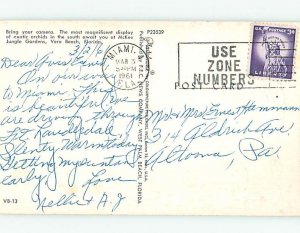 Bring your camera. The most magnificent display
of exotic orchids in the south await you at McKee
Jungle Gardens, Vero Beach, Florida.
P23539
3/2/61
Dear
On our
to Miami. This
is beautiful. We
are driving to
Ft. Lauderdale,
Plenty Warm today
Getting my suntan
early. Love
Nellie + A.J.
VB-13
WEST PALM BEACH, FLORIDA
MIAMI, FLA.
MAR 3
PM
1961
USE
ZONE
NUMBERS
POST CARD
LIBERTY
3¢
Mr + Mrs Ernest Hammann
314 Aldrich Ave
Altoona, Pa.